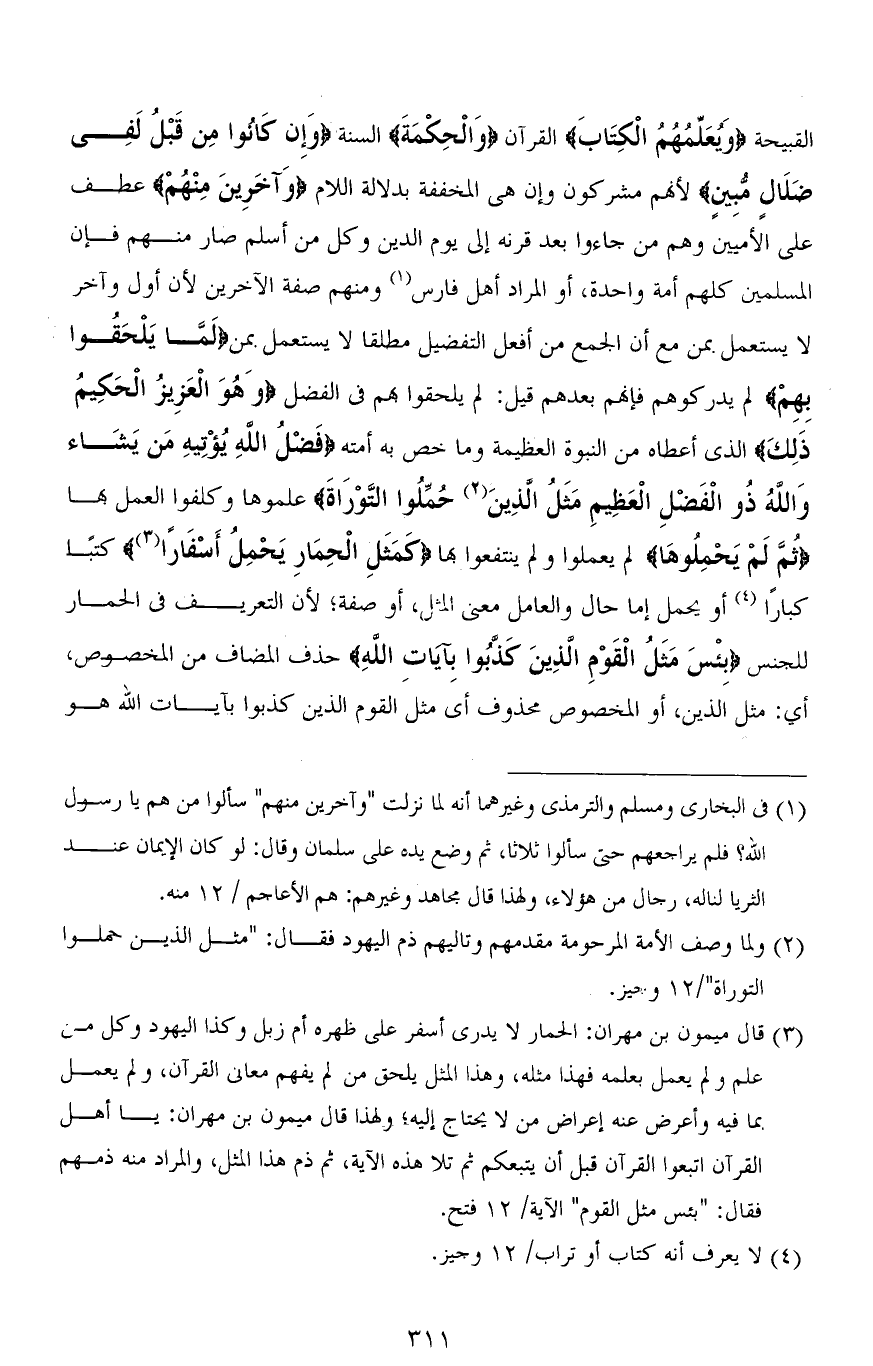 القبيحة ﴿وَيُعَلِّمُهُمُ الْكِتَابَ﴾ القرآن ﴿وَالْحِكْمَةَ﴾ السنة ﴿وَإِن كَانُوا مِن قَبْلُ لَفِى
ضَلَالٍ مُّبِينٍ﴾ لأنهم مشركون وإن هى المخففة بدلالة اللام ﴿وَآخَرِينَ مِنْهُمْ﴾ عطف
على الأميين وهم من جاءوا بعد قرنه إلى يوم الدين وكل من أسلم صار منهم فإن
المسلمين كلهم أمة واحدة، أو المراد أهل فارس(١) ومنهم صفة الآخرين لأن أول وآخر
لا يستعمل بمن مع أن الجمع من أفعل التفضيل مطلقا لا يستعمل بمن﴿لَمَّا يَلْحَقُوا
بِهِمْ﴾ لم يدركوهم فإنهم بعدهم قيل: لم يلحقوا بهم فى الفضل ﴿وَهُوَ الْعَزِيزُ الْحَكِيمُ
ذَلِكَ﴾ الذى أعطاه من النبوة العظيمة وما خص به أمته ﴿فَضْلُ اللَّهِ يُؤْتِيهِ مَن يَشَاء
وَاللَّهُ ذُو الْفَضْلِ الْعَظِيمِ مَثَلُ الَّذِينَ(٢) حُمِّلُوا التَّوْرَاةَ﴾ علموها وكلفوا العمل بها
﴿ثُمَّ لَمْ يَحْمِلُوهَا﴾ لم يعملوا ولم ينتفعوا بها ﴿كَمَثَلِ الْحِمَارِ يَحْمِلُ أَسْفَارًا(٣)﴾ كتبًا
كبارًا (٤) أو يحمل إما حال والعامل معنى المثل، أو صفة؛ لأن التعريف فى الحمار
للجنس ﴿بِئْسَ مَثَلُ الْقَوْمِ الَّذِينَ كَذَّبُوا بِآيَاتِ اللَّهِ﴾ حذف المضاف من المخصوص،
أي: مثل الذين، أو المخصوص محذوف أى مثل القوم الذين كذبوا بآيات الله هو
(١) فى البخارى ومسلم والترمذى وغيرهما أنه لما نزلت "وآخرين منهم" سألوا من هم يا رسول
الله؟ فلم يراجعهم حتى سألوا ثلاثا، ثم وضع يده على سلمان وقال: لو كان الإيمان عند
الثريا لناله، رجال من هؤلاء، ولهذا قال مجاهد وغيرهم: هم الأعاجم / ١٢ منه.
(٢) ولما وصف الأمة المرحومة مقدمهم وتاليهم ذم اليهود فقال: "مثل الذين حملوا
التوراة"/١٢ وجيز.
(٣) قال ميمون بن مهران: الحمار لا يدرى أسفر على ظهره أم زبل وكذا اليهود وكل من
علم ولم يعمل بعلمه فهذا مثله، وهذا المثل يلحق من لم يفهم معانى القرآن، ولم يعمل
بما فيه وأعرض عنه إعراض من لا يحتاج إليه؛ ولهذا قال ميمون بن مهران: يا أهل
القرآن اتبعوا القرآن قبل أن يتبعكم ثم تلا هذه الآية، ثم ذم هذا المثل، والمراد منه ذمهم
فقال: "بئس مثل القوم" الآية/ ١٢ فتح.
(٤) لا يعرف أنه كتاب أو تراب/ ١٢ وجيز.
٣١١